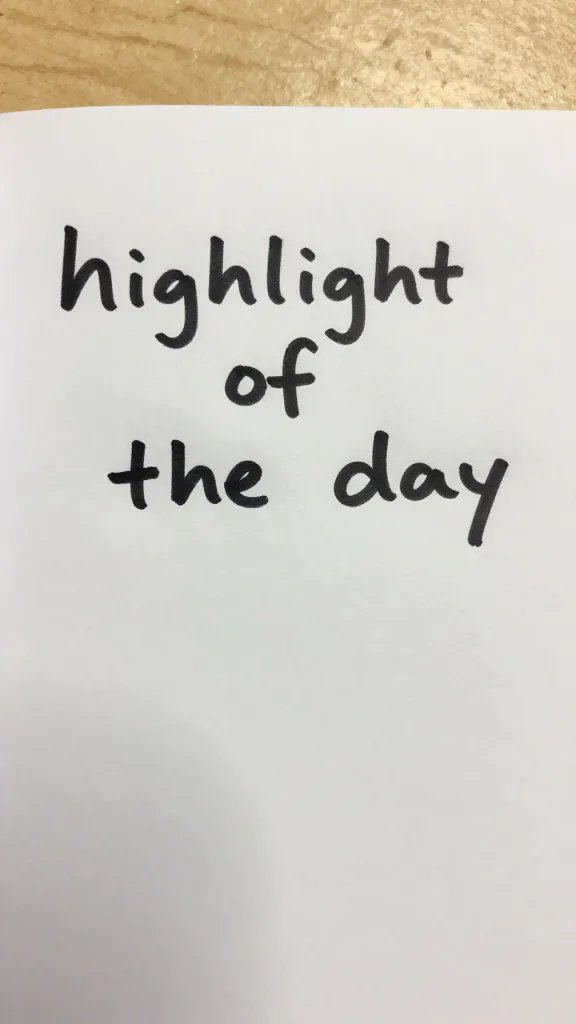 highlight
of
the day